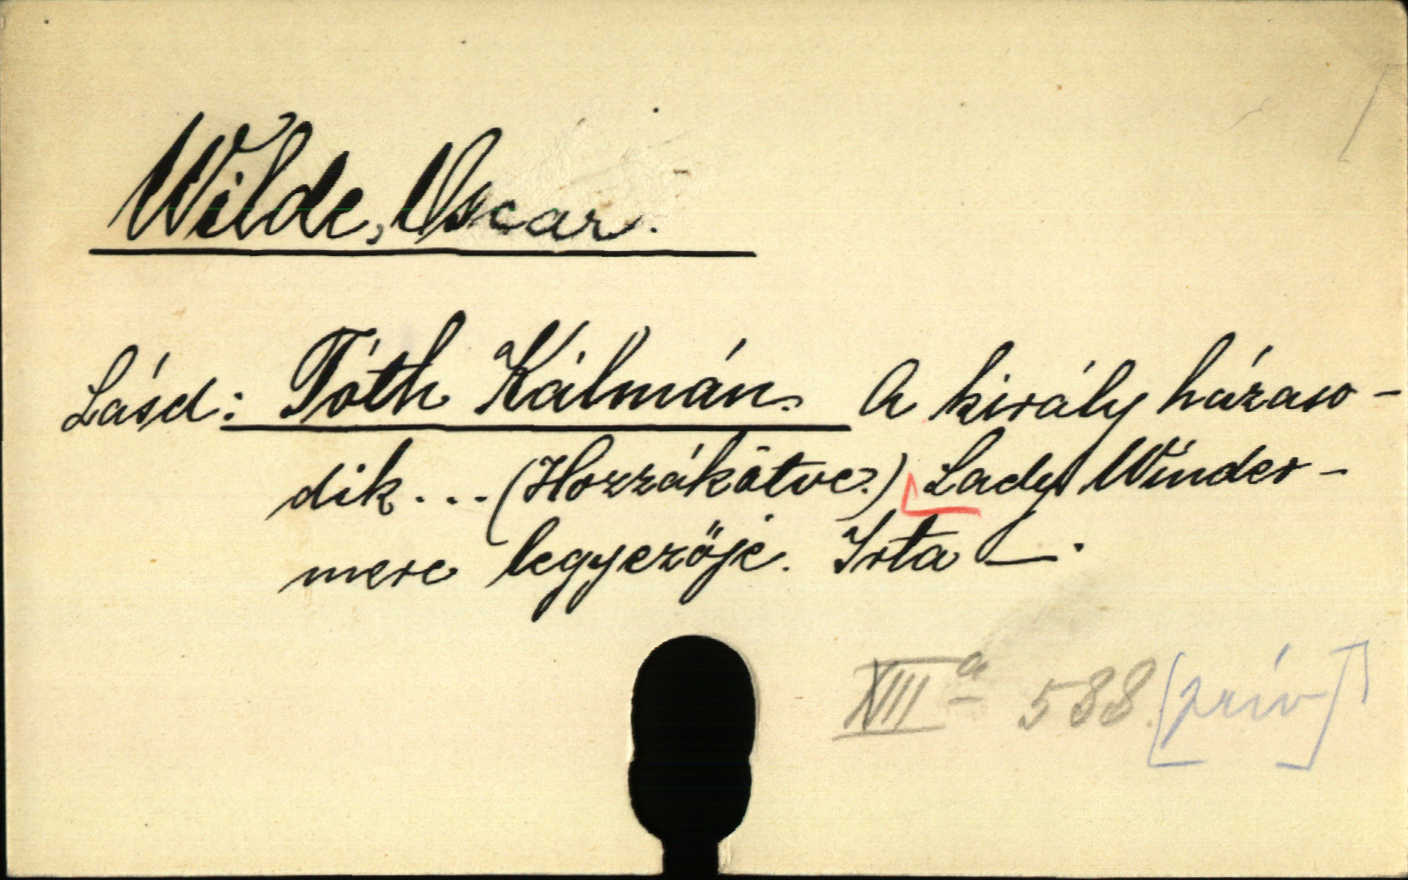 Wilde, Oscar.
Lásd: Tóth Kálmán. A király házaso-
dik... (Hozzákötve.) Lady Winder-
mere legyezője. Irta —.
XIII a 588. [priv]